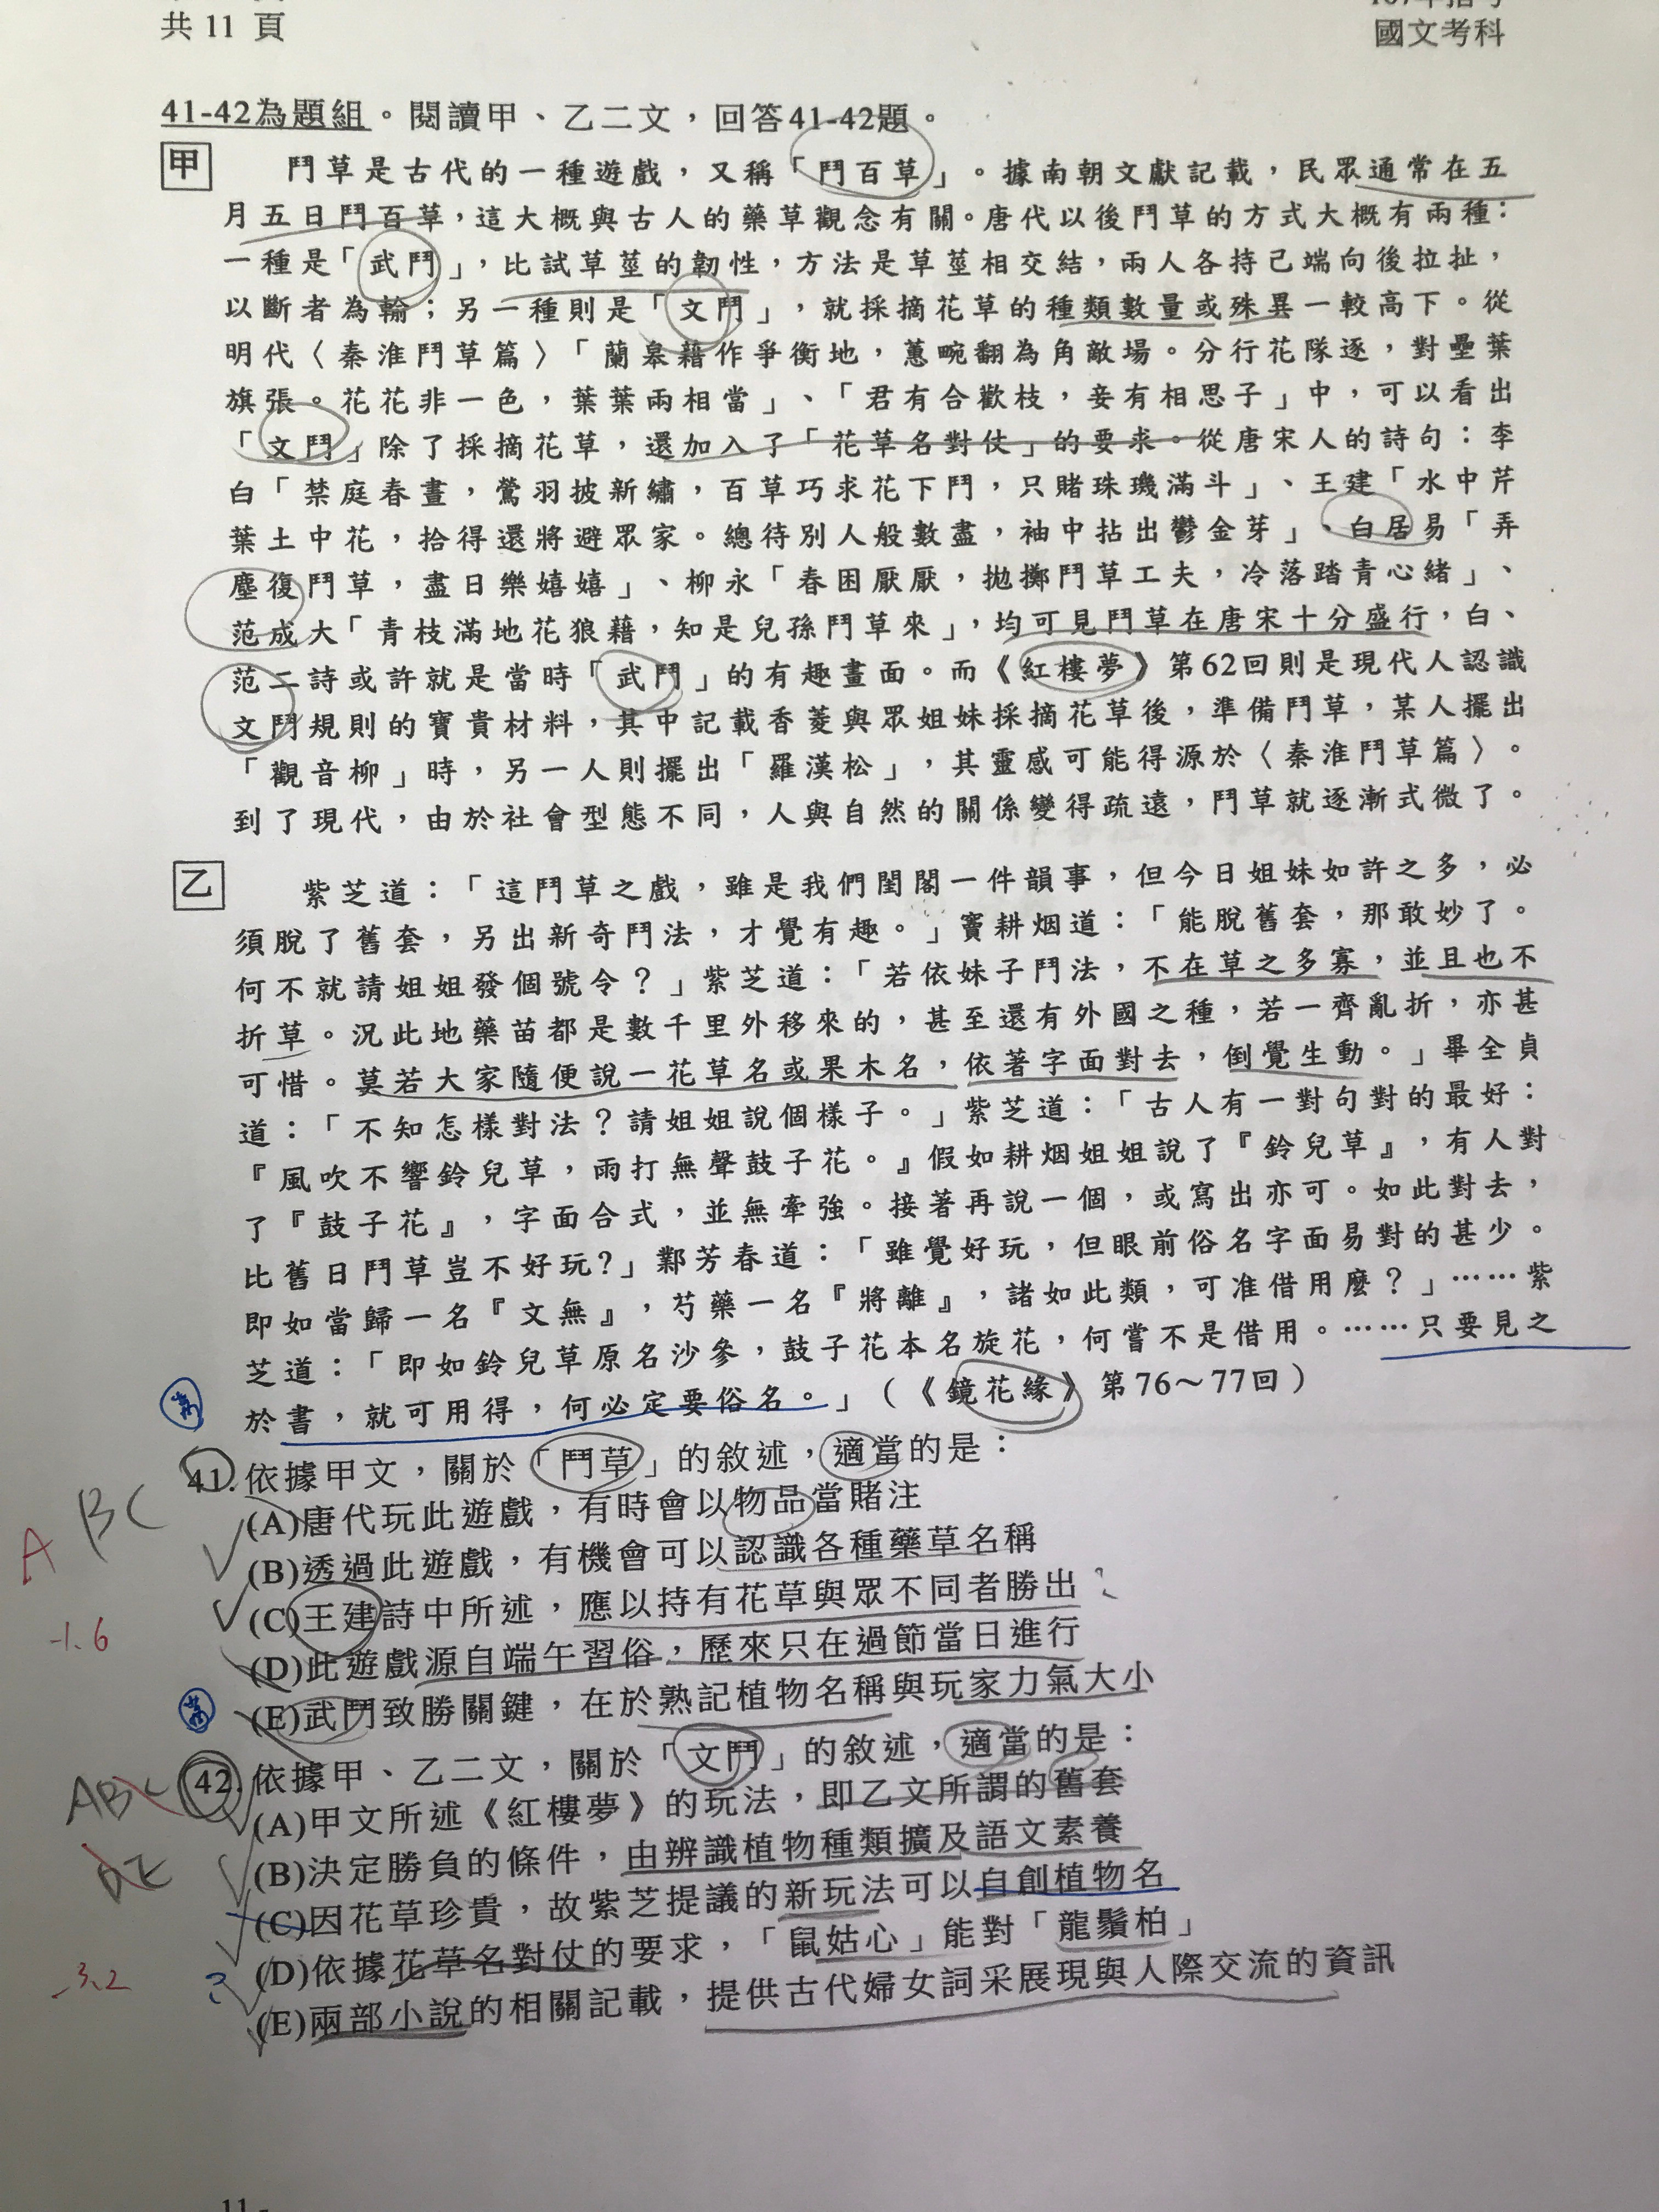 共 11 頁
國文考科
41-42為題組。閱讀甲、乙二文，回答41-42題。
甲 鬥草是古代的一種遊戲，又稱「鬥百草」。據南朝文獻記載，民眾通常在五
月五日鬥百草，這大概與古人的藥草觀念有關。唐代以後鬥草的方式大概有兩種：
一種是「武鬥」，比試草莖的韌性，方法是草莖相交結，兩人各持己端向後拉扯，
以斷者為輸；另一種則是「文鬥」，就採摘花草的種類數量或殊異一較高下。從
明代〈秦淮鬥草篇〉「蘭皋藉作爭衡地，蕙畹翻為角敵場。分行花隊逐，對壘葉
旗張。花花非一色，葉葉兩相當」、「君有合歡枝，妾有相思子」中，可以看出
「文鬥」除了採摘花草，還加入了「花草名對仗」的要求。從唐宋人的詩句：李
白「禁庭春晝，鶯羽披新繡，百草巧求花下鬥，只賭珠璣滿斗」、王建「水中芹
葉土中花，拾得還將避眾家。總待別人般數盡，袖中拈出鬱金芽」、白居易「弄
塵復鬥草，盡日樂嬉嬉」、柳永「春困厭厭，拋擲鬥草工夫，冷落踏青心緒」、
范成大「青枝滿地花狼藉，知是兒孫鬥草來」，均可見鬥草在唐宋十分盛行，白、
范二詩或許就是當時「武鬥」的有趣畫面。而《紅樓夢》第62回則是現代人認識
文鬥規則的寶貴材料，其中記載香菱與眾姐妹採摘花草後，準備鬥草，某人擺出
「觀音柳」時，另一人則擺出「羅漢松」，其靈感可能得源於〈秦淮鬥草篇〉。
到了現代，由於社會型態不同，人與自然的關係變得疏遠，鬥草就逐漸式微了。
乙 紫芝道：「這鬥草之戲，雖是我們閨閣一件韻事，但今日姐妹如許之多，必
須脫了舊套，另出新奇鬥法，才覺有趣。」竇耕烟道：「能脫舊套，那敢妙了。
何不就請姐姐發個號令？」紫芝道：「若依妹子鬥法，不在草之多寡，並且也不
折草。況此地藥苗都是數千里外移來的，甚至還有外國之種，若一齊亂折，亦甚
可惜。莫若大家隨便說一花草名或果木名，依著字面對去，倒覺生動。」畢全貞
道：「不知怎樣對法？請姐姐說個樣子。」紫芝道：「古人有一對句對的最好：
『風吹不響鈴兒草，雨打無聲鼓子花。』假如耕烟姐姐說了『鈴兒草』，有人對
了『鼓子花』，字面合式，並無牽強。接著再說一個，或寫出亦可。如此對去，
比舊日鬥草豈不好玩？」鄴芳春道：「雖覺好玩，但眼前俗名字面易對的甚少。
即如當歸一名『文無』，芍藥一名『將離』，諸如此類，可准借用麼？」……紫
芝道：「即如鈴兒草原名沙參，鼓子花本名旋花，何嘗不是借用。……只要見之
於書，就可用得，何必定要俗名。」（《鏡花緣》第76～77回）
41.依據甲文，關於「鬥草」的敘述，適當的是：
(A)唐代玩此遊戲，有時會以物品當賭注
(B)透過此遊戲，有機會可以認識各種藥草名稱
(C)王建詩中所述，應以持有花草與眾不同者勝出
(D)此遊戲源自端午習俗，歷來只在過節當日進行
(E)武鬥致勝關鍵，在於熟記植物名稱與玩家力氣大小
BC
A
-1.6
42.依據甲、乙二文，關於「文鬥」的敘述，適當的是：
(A)甲文所述《紅樓夢》的玩法，即乙文所謂的舊套
(B)決定勝負的條件，由辨識植物種類擴及語文素養
(C)因花草珍貴，故紫芝提議的新玩法可以自創植物名
(D)依據花草名對仗的要求，「鼠姑心」能對「龍鬚柏」
(E)兩部小說的相關記載，提供古代婦女詞采展現與人際交流的資訊
ABC
DE
-3.2